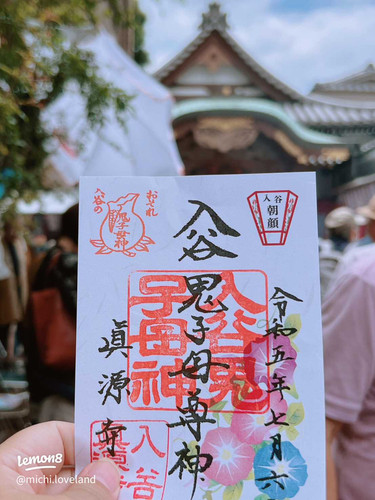 おそれ
入谷の
鬼子母神
入谷
朝顔
入谷
鬼子母尊神
令和五年七月六
眞源寺
入谷鬼
子母神
入谷
眞源
lemon8
@michi.loveland